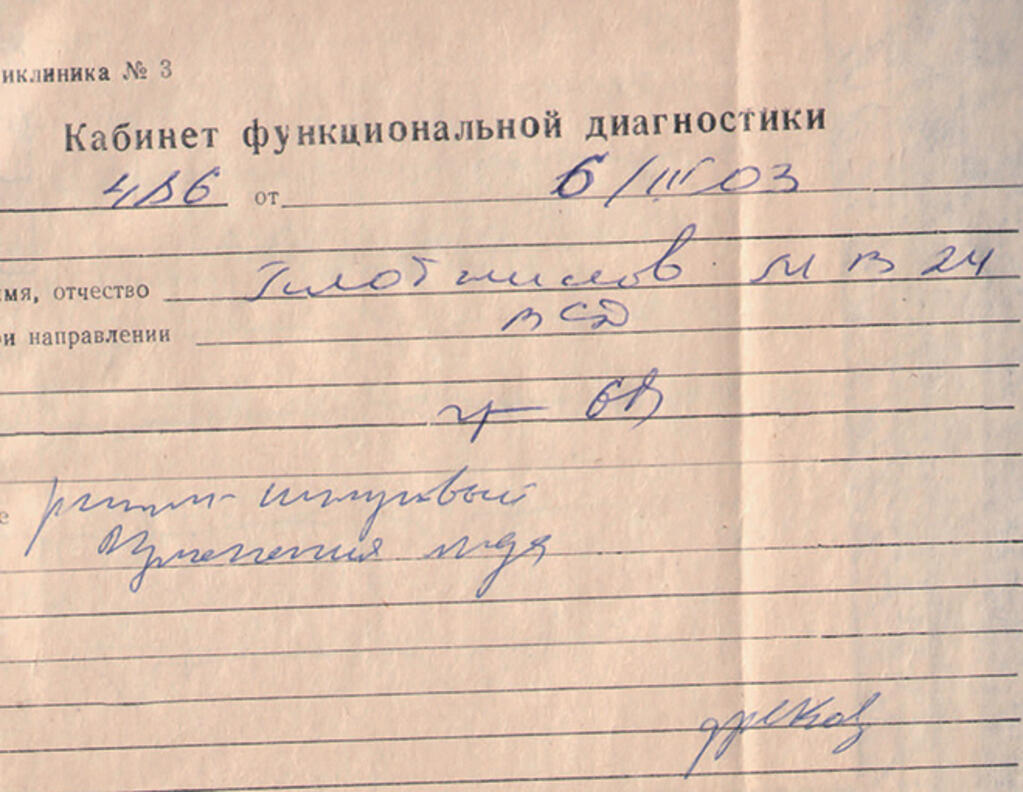 иклиника № 3
Кабинет функциональной диагностики
486 от 6/III 03
мя, отчество Плотников М В 24
и направлении ВСД
е ритм синусовый
Изменения